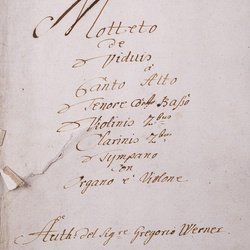 Motteto
de
Viduis
a
Canto Alto
Tenore Basso
Violinis 2bus
Clarinis 2bus
Tympano
con
Organo e Violone
Auth: del Sigre Gregorio Werner